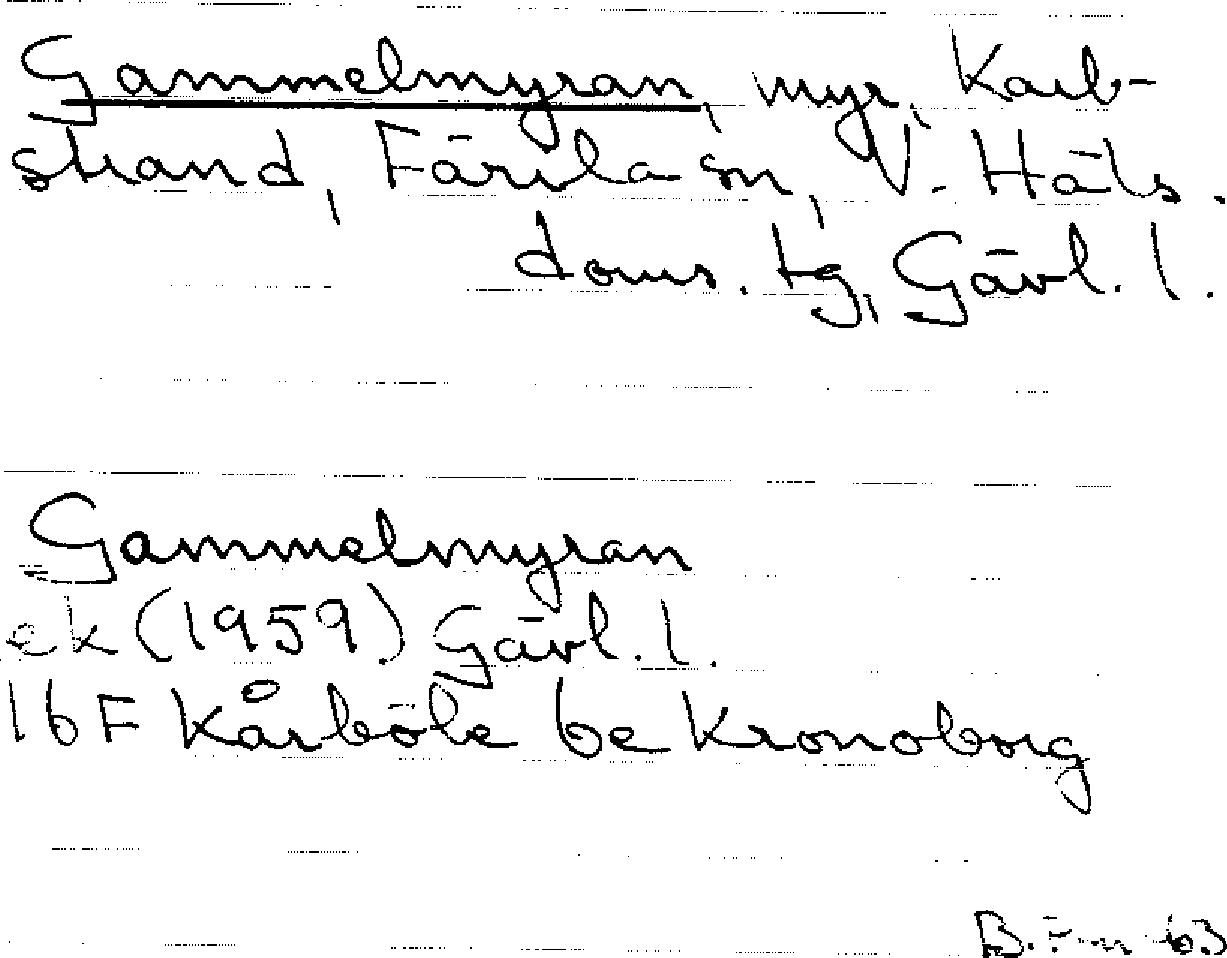 Gammelmyran, myr, Karb-
strand, Färila sn, V. Häls.
doms. tg, Gävl. l.
Gammelmyran
ek (1959) Gävl. l.
16 F Kårböle 6e Kronoborg
B. 63